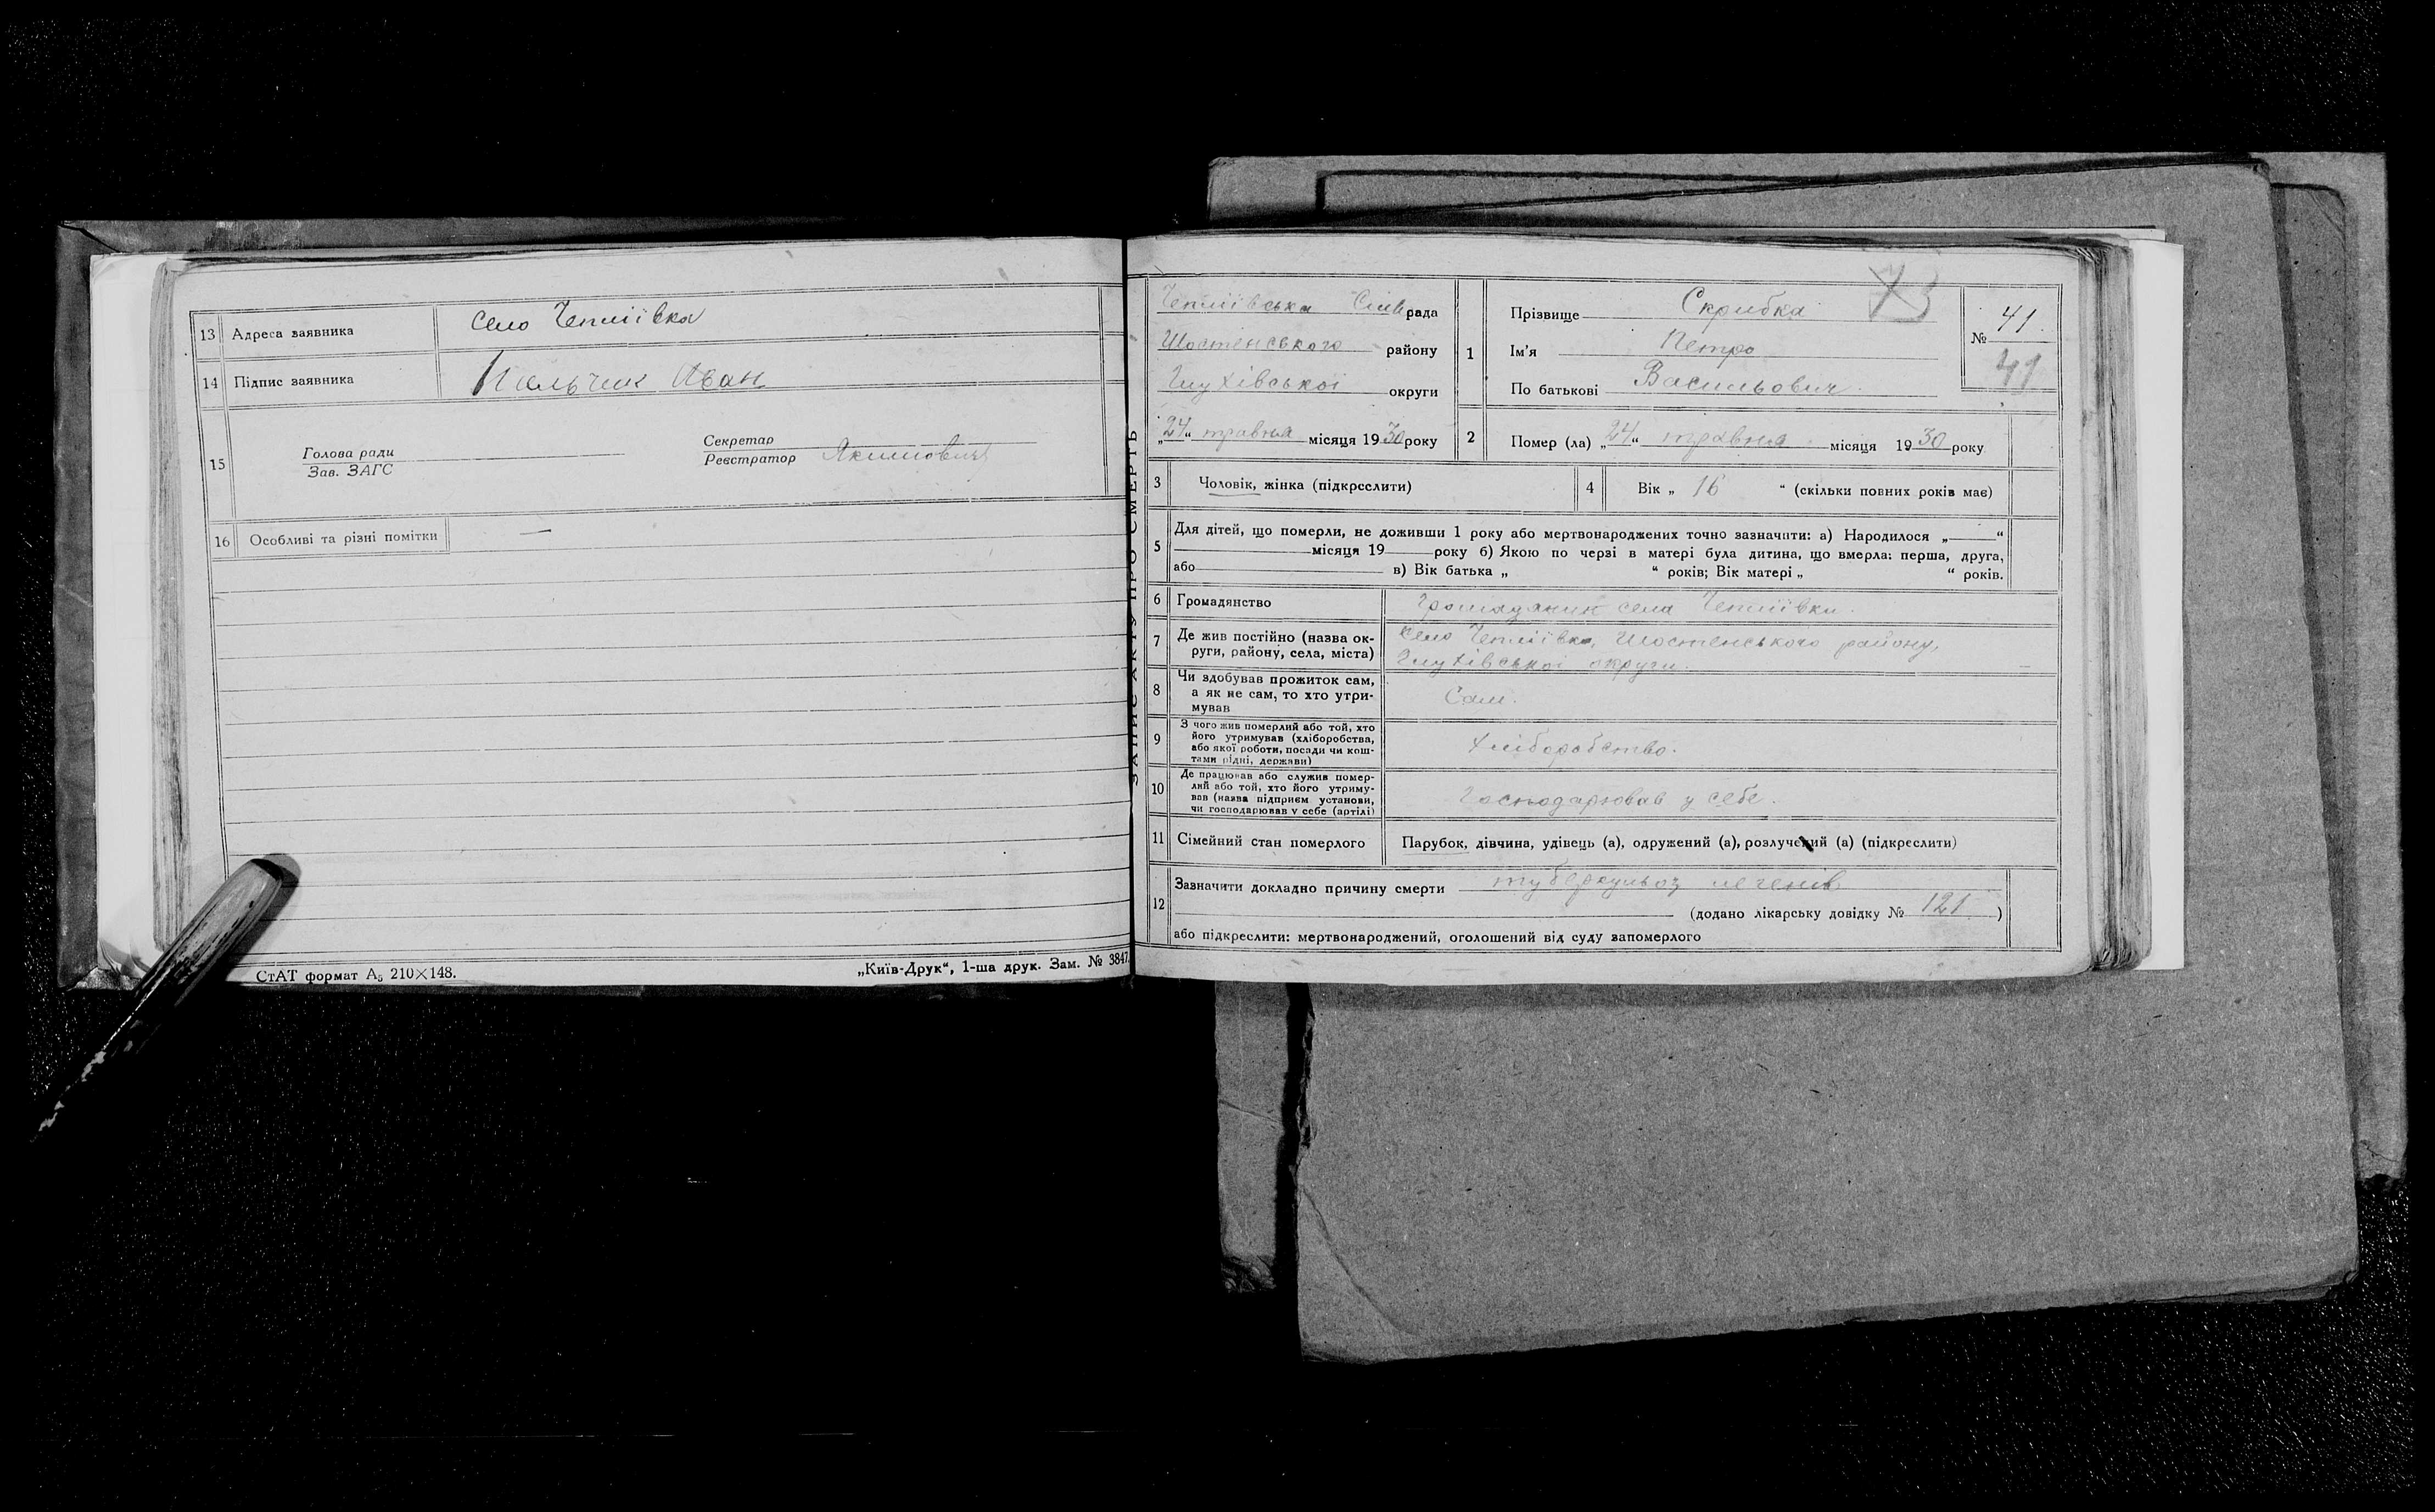 13 Адреса заявника село Чепліївка
14 Підпис заявника Пальчик Иван
15 Голова ради
Зав. ЗАГС
Секретар
Реєстратор Якимович
16 Особливі та різні помітки —
СтАТ формат А5 210×148.
„Київ-Друк“, 1-ша друк. Зам. № 3847.
ЗАПИС АКТУ ПРО СМЕРТЬ
Чепліївська Сільрада
Шостенського району
Глухівської округи
„24“ травня місяця 1930 року
1 Прізвище Скрибка
Ім'я Петро
По батькові Васильович
№ 41.
41
2 Помер (ла) „24“ травня місяця 1930 року
3 Чоловік, жінка (підкреслити)
4 Вік „ 16 “ (скільки повних років має)
5 Для дітей, що померли, не доживши 1 року або мертвонароджених точно зазначити: а) Народилося „ “
місяця 19 року б) Якою по черзі в матері була дитина, що вмерла: перша, друга,
або в) Вік батька „ “ років; Вік матері „ “ років.
6 Громадянство громадянин села Чепліївки.
7 Де жив постійно (назва ок-
руги, району, села, міста)
Село Чепліївка, Шостенського району,
Глухівської округи.
8 Чи здобував прожиток сам,
а як не сам, то хто утри-
мував
Сам.
9 З чого жив померлий або той, хто
його утримував (хліборобства,
або якої роботи, посади чи кош-
тами рідні, держави)
Хліборобство.
10 Де працював або служив помер-
лий або той, хто його утриму-
вав (назва підприєм установи,
чи господарював у себе (артілі)
Господарював у себе.
11 Сімейний стан померлого Парубок, дівчина, удівець (а), одружений (а), розлучений (а) (підкреслити)
12 Зазначити докладно причину смерти туберкульоз легенів
(додано лікарську довідку № 121. )
або підкреслити: мертвонароджений, оголошений від суду запомерлого